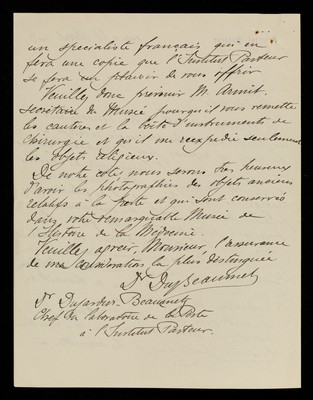 un spécialiste français qui en
fera une copie que l'Institut Pasteur
se fera un plaisir de vous offrir
Veuillez donc prévenir M.
secrétaire du Musée pour qu'il vous remette
les cautères et la boîte d'instruments de
chirurgie et qu'il me réexpédie seulement
les objets religieux.
De notre côté, nous serons très heureux
d'avoir les photographies des objets anciens
relatifs à la Peste et qui sont conservés
dans votre remarquable Musée de
l'Histoire de la Médecine.
Veuillez agréer, Monsieur, l'assurance
de ma considération la plus distinguée
Dr DujBeaumetz
Dr Dujardin-Beaumetz
Chef du laboratoire de la Peste
à l'Institut Pasteur.